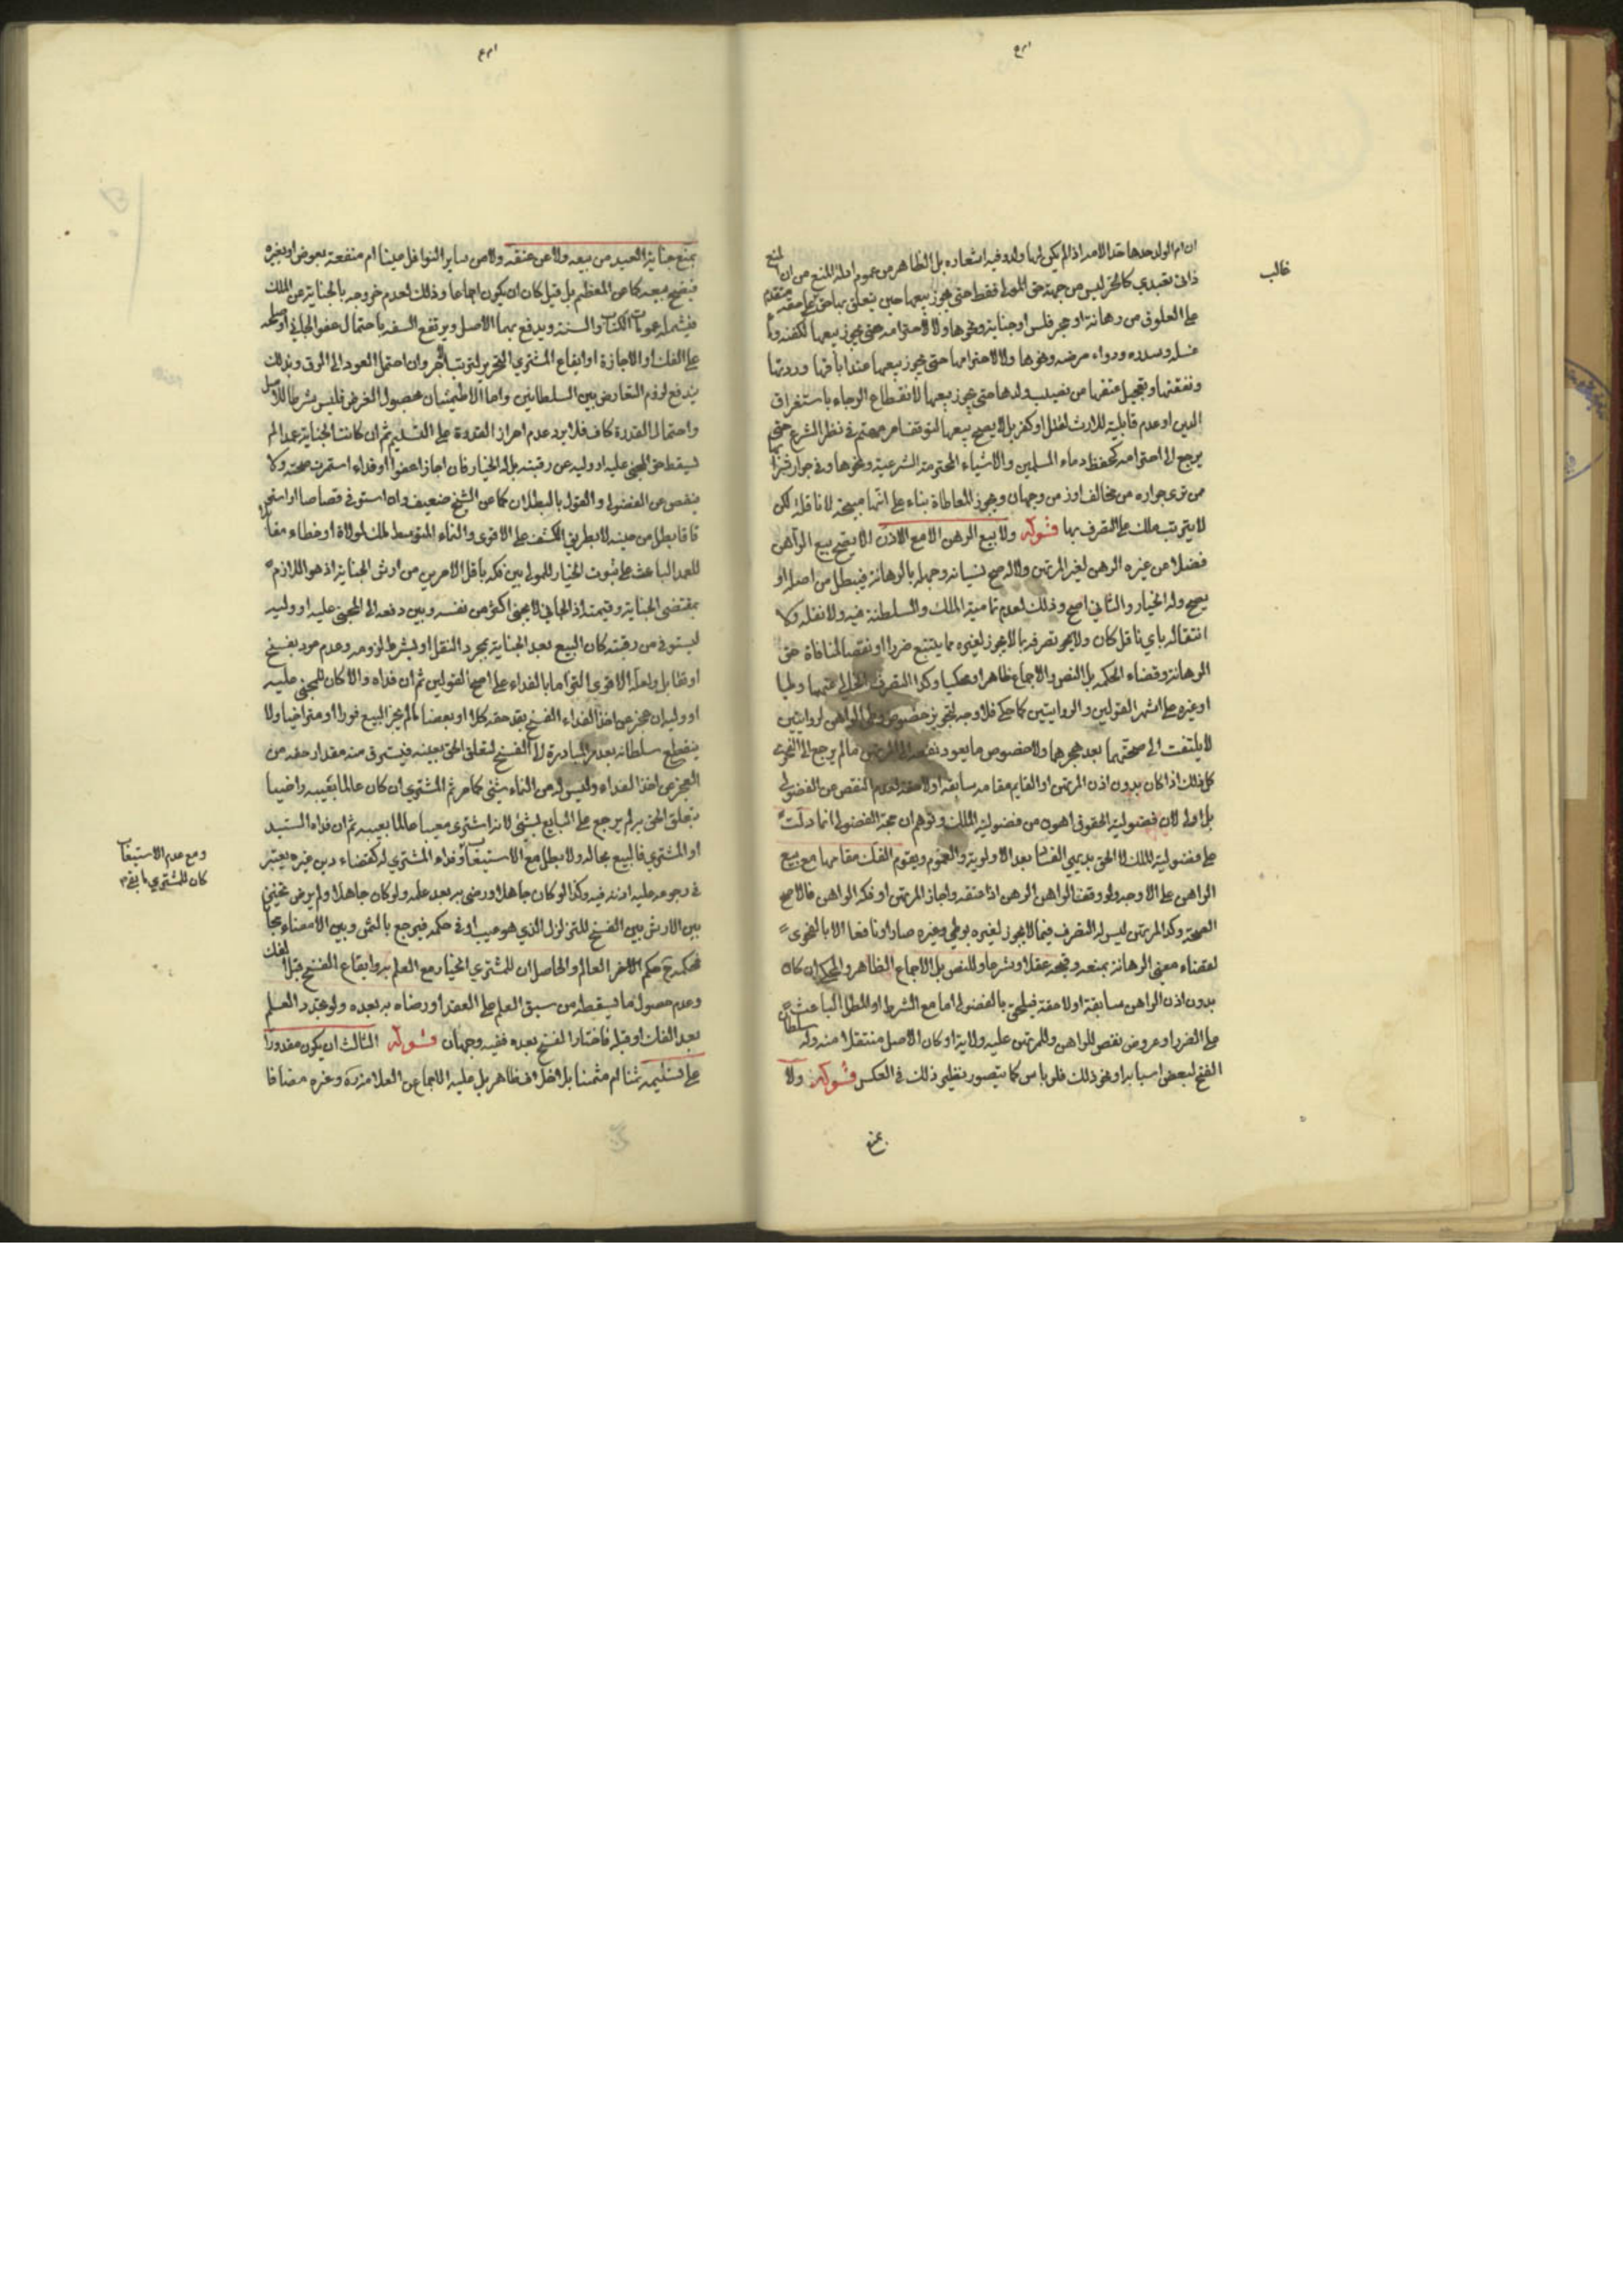 ان ام الولد حدها حد الامة اذا لم يكن لها ولد وفيه اشعار به بل الظاهر من عموم ادلة المنع من ان المنع
غالب
ذاتي تعبدي كالحر ليس من جهة حق المولى فقط حتى يجوز بيعها حين يتعلق بها حق على حقه متقدم
على العلوق من رهانة او حجر فلس او جناية ونحوها ولا لاحترامه حتى يجوز بيعها لكفنه وماء
غسله وسدره ودواء مرضه ونحوها ولا لاحترامها حتى يجوز بيعها عند اباقها وردتها
ونفقتها وتعجيل عتقها من نصيب ولدها حتى يجوز بيعها لانقطاع الرجاء باستغراق
الدين او عدم قابلية للارث لقتل او كفر بل لا يصح بيعها لتوقف امر مهتم في نظر الشرع حتى
يرجع الى احترامه كحفظ دماء المسلمين والاشياء المحترمة الشرعية ونحوها وفي جوار شرائها
من نرى جوازه من مخالف اوذ من وجهان ويجوز المعاطاة بناء على انها مبيحة لا ناقلة لكن
لا يترتب ملك على التصرف بها قوله ولا بيع الرهن الا مع الاذن لا يصح بيع الراهن
فضلا من غيره الرهن لغير المرتهن والا له صح نسيانه وجهله بالرهانة فيبطل من اصله او
يصح وله الخيار والثاني اصح وذلك لعدم تمامية الملك والسلطنة فيه ولا نقله ولا
انتقاله باي ناقل كان ولا يجوز تصرفه بالا يجوز لغيره مما يستتبع ضررا او نقصا لمنافاة حق
الرهانة وقضاء الحكمة بل النص والاجماع ظاهرا ومحكيا وكذا التصرف الخالي عنهما وطيا
او غيره على اشهر القولين والروايتين كما حكي فلا وجه لتجويز خصوص وطي الراهن لروايتين
لا يلتفت الى صحتهما بعد هجرهما ولا خصوص ما يعود نفعه الى المرتهن ما لم يرجع الى الفحوى
كل ذلك اذا كان بدون اذن المرتهن او القايم مقامه سابقة او لاحقة لعدم النقص عن الفضولي
بل اولى لان فضولية الحقوق اهون من فضولية الملك وتوهم ان حجة الفضولي انما دلت
على فضولية الملك لا الحق بديهي الفساد بعد الاولوية والعموم ويقوم الفك مقامها مع بيع
الراهن على الاوجه ولو وقف الراهن الرهن اذا عتقه واجاز المرتهن او فكه الراهن فالاصح
الصحة وكذا المرتهن ليس له التصرف فيما لا يجوز لغيره بوطي وغيره صارا او نافعا الا بالفحوى
لقضاء معنى الرهانة بمنعه وقبحه عقلا وشرعا وللنص بل الاجماع الظاهر والمحكي ان كان
بدون اذن الراهن سابقة او لاحقة فيلحق بالفضولي اما مع الشرط او المطل الباعث
على الضرر او عروض نقص للراهن وللمرتهن عليه ولاية او كان الاصل منتقلا منه وله سلطان
الفسخ لبعض اسبابه او نحو ذلك فلا باس كما يتصور نظير ذلك في العكس قوله ولا
يمنع
يمنع جناية العبد من بيعه ولا من عتقه ولا من ساير النواقل عينا ام منفعة بعوض او بغيره
فيصح بيعه كما عن المعظم بل قيل كان ان يكون اجماعا وذلك لعدم خروجه بالجناية عن الملك
فيشمله عمومات الكتاب والسنة ويدفع بهما الاصل ويرتفع السفه باحتمال عفو الجاني او صلحه
على الفك او الاجازة او ايقاع المشتري التحرير لترتب الاجر وان احتمل العود الى الرق وبذلك
يندفع لزوم التعارض بين السلطانين واما الاطمئنان بحصول الغرض فليس بشرط للاصل
واحتمال القدرة كاف فلا يرد عدم احراز القدرة على التسليم ثم ان كانت الجناية عمدا لم
يسقط حق المجني عليه او وليه عن رقبته بل له الخيار فان اجاز اعفوا او فداء استمرت صحته ولا
ينقص عن الفضولي والقول بالبطلان كما عن الشيخ ضعيف وان استوفي قصاصا او استرقاقا
بطل من حينه لا بطريق الكشف على الاقوى والنماء المتوسط لملك لولاة او خطاء مقابلا
للعمد الباعث على ثبوت الخيار للمولى بين فكه باقل الامرين من ارش الجناية اذ هو اللازم
بمقتضى الجناية وقيمته اذ الجاني لا يجني اكثر من نفسه وبين دفعه الى المجني عليه او وليه
ليستوفي من رقبته كان البيع بعد الجناية بمجرد النقل او بشرط لزومه وعدم عود بفسخ
او تقابل ولعله الاقوى التزاما بالفداء على اصح القولين ثم ان فداه والا كان للمجني عليه
او وليه ان عجز عن اخذ الفداء الفسخ بقدر حقه كلا او بعضا لما لم يجز البيع فورا او متراخيا ولا
ينقطع سلطانه بعدم المبادرة الى الفسخ لتعلق الحق بعينه فيسترق منه مقدار حقه من
العجز عن اخذ الفداء وليس له من النماء شيئ كما مر ثم المشتري ان كان عالما بعيبه راضيا
بتعلق الحق به لم يرجع على البايع بشيئ لانه اشترى معيبا عالما بعيبه ثم ان فداه السيد
او المشتري فالبيع بحاله ولا بطل مع الاستيعاب وفداء المشتري له كقضاء دين غيره يعتبر
ومع عدم الاستيعاب
كان للمشتري ما بقي
في رجوعه عليه اذنه فيه وكذا لو كان جاهلا ورضي به بعد علمه ولو كان جاهلا ولم يرض تخير
بين الارش بين الفسخ للتزلزل الذي هو عيب او في حكمه فيرجع بالثمن وبين الامضاء مجانا
فحكمه ح حكم الاخر العالم والحاصل ان للمشتري الخيار مع العلم به وايقاع الفسخ قبل الفك
وعدم حصول ما يسقطه من سبق العلم على العقد او رضاه به بعده ولو تجدد العلم
بعد الفك او قبله فاختار الفسخ بعده ففيه وجهان قوله الثالث ان يكون مقدورا
على تسليمه ثمنا ام مثمنا بلا خلاف ظاهر بل عليه الاجماع عن العلامة وغيره مضافا